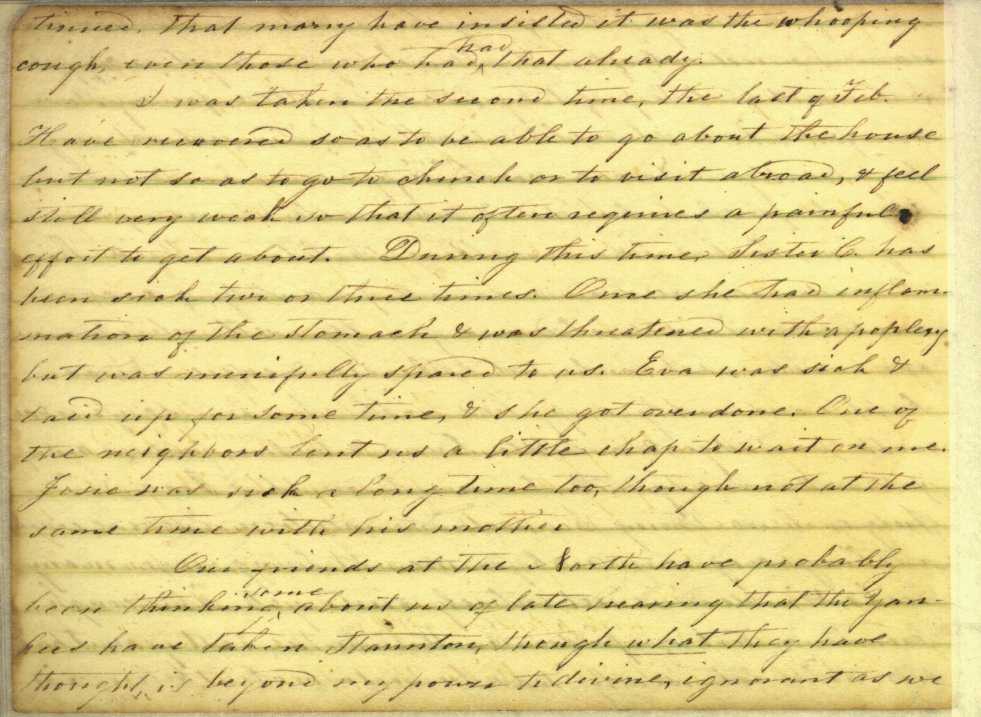 tinued, that many have insisted it was the whooping
cough, even those who had had that already.
I was taken the second time, the last of Feb.
Have recovered so as to be able to go about the house
but not so as to go to church or to visit abroad, & feel
still very weak so that it often requires a painful
effort to get about. During this time, Sister C. has
been sick two or three times. Once she had inflam-
mation of the stomach & was threatened with apoplexy
but was mercifully spared to us. Eva was sick &
laid up for some time, & she got overdone. One of
the neighbors lent us a little chap to wait on me.
Josie was sick a long time too, though not at the
same time with his mother
Our friends at the North have probably
been thinking some about us of late hearing that the Yan-
kees have taken Staunton, though what they have
thought, is beyond my power to divine, ignorant as we